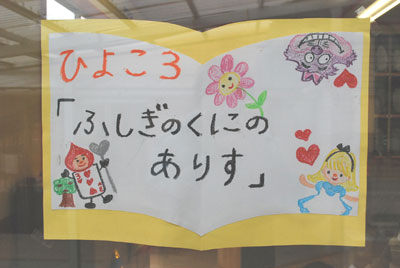 ひよこ3
「ふしぎのくにの
ありす」